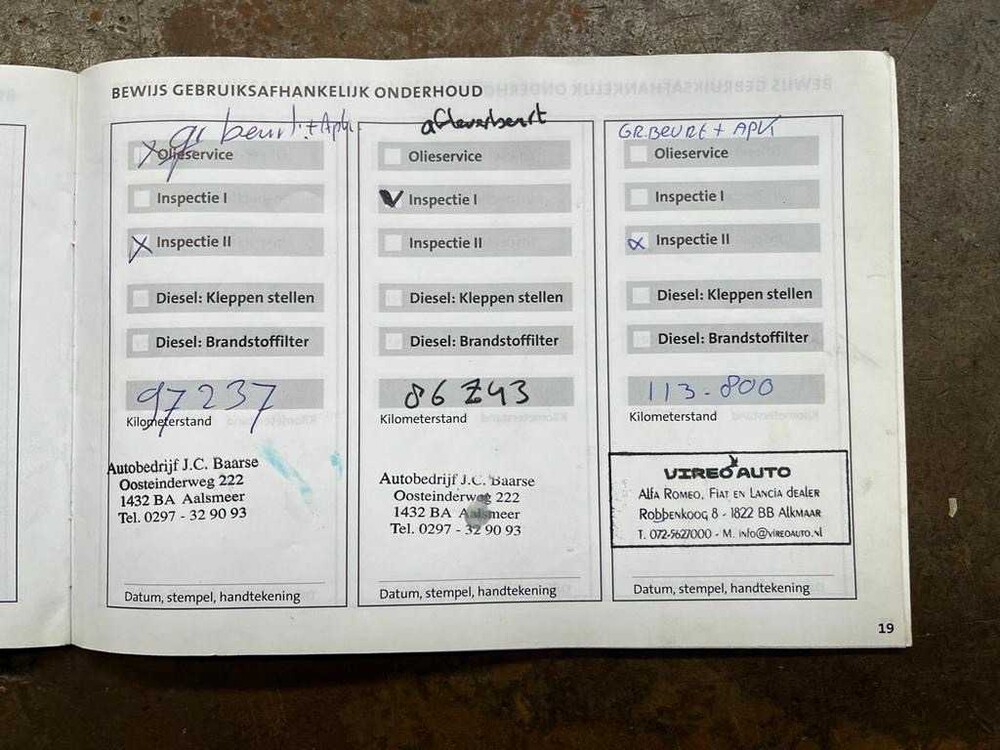 BEWIJS GEBRUIKSAFHANKELIJK ONDERHOUD
gr beurt + Apk
Olieservice
Inspectie I
Inspectie II
Diesel: Kleppen stellen
Diesel: Brandstoffilter
97237
Kilometerstand
Autobedrijf J.C. Baarse
Oosteinderweg 222
1432 BA Aalsmeer
Tel. 0297 - 32 90 93
Datum, stempel, handtekening
afleverbeurt
Olieservice
Inspectie I
Inspectie II
Diesel: Kleppen stellen
Diesel: Brandstoffilter
86243
Kilometerstand
Autobedrijf J.C. Baarse
Oosteinderweg 222
1432 BA Aalsmeer
Tel. 0297 - 32 90 93
Datum, stempel, handtekening
GR.BEURT + APK
Olieservice
Inspectie I
Inspectie II
Diesel: Kleppen stellen
Diesel: Brandstoffilter
113.800
Kilometerstand
VIREO AUTO
Alfa Romeo, Fiat en Lancia dealer
Robbenkoog 8 - 1822 BB Alkmaar
T. 072-5627000 - M. info@vireoauto.nl
Datum, stempel, handtekening
19